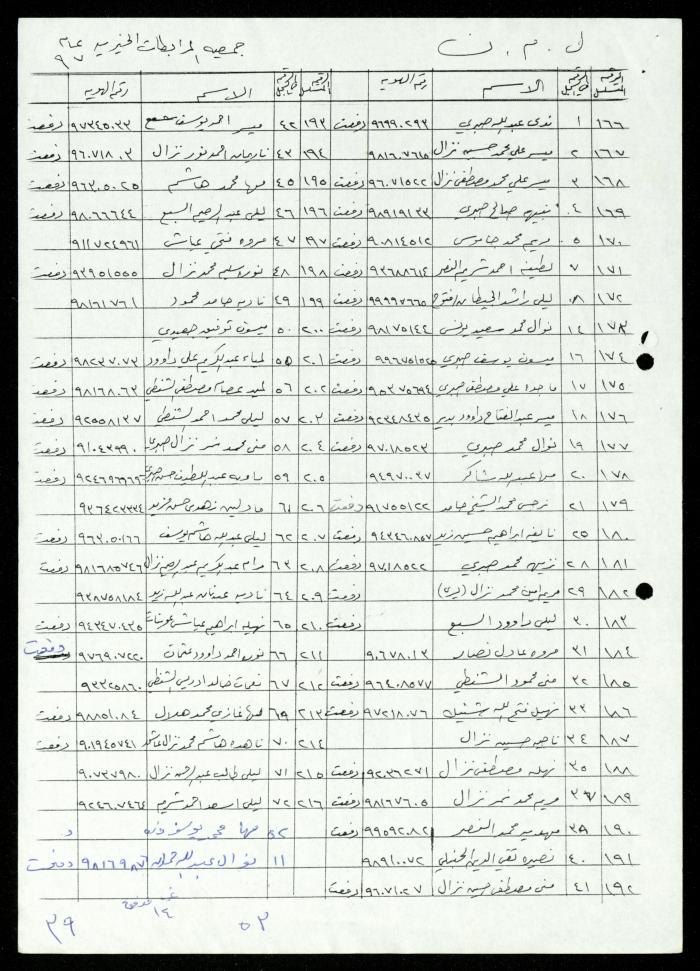 ل . م . ن جمعية المرابطات الخيرية عام ٩٧
الرقم المتسلسل الرقم الاسم رقم الهوية الرقم المتسلسل الرقم الاسم رقم الهوية
١٦٦ ١ ندى عبدالله صبري ٩٦٩٩٠٢٩٣ دفعت ١٩٣ ٤٢ ميسر احمد يوسف ٩٧٣٤٥٠٣٣ دفعت
١٦٧ ٢ ميسر علي محمد حسين نزال ٩٨١٦٠٧٦١٥ ١٩٤ ٤٣ ناريمان احمد نور نزال ٩٦٠٧١٨٠٣ دفعت
١٦٨ ٣ ميسر علي محمد مصطفى نزال ٩٦٠٧١٥٢٢ دفعت ١٩٥ ٤٥ مها محمد هاشم ٩٦٣٠٥٠٢٥ دفعت
١٦٩ ٤ نبيهه صالح صبري ٩٨٩١٩١٣٣ دفعت ١٩٦ ٤٦ ليلى عبد الرحيم السبع ٩٨٠٦٦٦٤٤ دفعت
١٧٠ ٥ مريم محمد ٩٠٨١٤٥١٢ دفعت ١٩٧ ٤٧ مروه فتحي عباس ٩١١٧٢٤٩٦١
١٧١ ٧ لطفيه احمد شريم النصر ٩٣٦٨٨٦١٤ دفعت ١٩٨ ٤٨ نوره سليم محمد نزال ٩٣٩٥١٥٥٥ دفعت
١٧٢ ٨ ليلى راشد ٩٩٩٩٧٦٦٥ دفعت ١٩٩ ٤٩ ناديه حامد محمود ٩٨١٦١٧٦١
١٧٣ ١٤ نوال محمد سعيد يونس ٩٨١٧٥١٤٤ دفعت ٢٠٠ ٥٠ ميسون توفيق
١٧٤ ١٦ ميسون يوسف صبري ٩٩٦٧٥١٥٢٥ دفعت ٢٠١ ٥٥ لمياء عبد الكريم علي داوود ٩٨٢٣٧٠٧٣ دفعت
١٧٥ ١٧ ماجدا علي مصطفى صبري ٩٥٣٧٥٦٩٤ دفعت ٢٠٢ ٥٦ عصام مصطفى شنطي ٩٨١٦٨٠٦٣ دفعت
١٧٦ ١٨ ميسر عبد الفتاح داوود بدير ٩٢٣٤٨٤٣٥ دفعت ٢٠٣ ٥٧ ليلى محمد احمد الشنطي ٩٢٥٥٨١٣٧ دفعت
١٧٧ ١٩ نوال محمد صبري ٩٧٠١٨٥٢٣ دفعت ٢٠٤ ٥٨ منى محمد نمر نزال صبري دفعت
١٧٨ ٢٠ مها عبدالله شاكر ٩٤٩٧٠٠٣٧ دفعت ٢٠٥ ٥٩ عبد اللطيف حسن صبري دفعت
١٧٩ ٢١ نرجس محمد الشيخ حامد ٩١٧٥٥١٢٢ دفعت ٢٠٦ ٦١ مادلين زهدي حسن ٩٣٦٤٢٣٣٣٤
١٨٠ ٢٥ نايفه ابراهيم حسين زيد ٩٤٣٤٦٠٨٥٧ دفعت ٢٠٧ ٦٢ ليلى عبدالله هاشم يوسف ٩٦٣٠٥١٦٦ دفعت
١٨١ ٢٨ نزيهه محمد صبري ٩٧٠١٨٥٢٢ دفعت ٢٠٨ ٦٣ مرام عبد الكريم عبد الرحيم نزال ٩٨١٦٨٥٧٤٦ دفعت
١٨٢ ٢٩ مريم امين محمد نزال دفعت ٢٠٩ ٦٤ ناديه عدنان عبدالله زيد ٩٣٨٧٥٨١٨٤
١٨٣ ٣٠ ليلى داوود السبع دفعت ٢١٠ ٦٥ نهيله ابراهيم عباس ٩٤٣٤٧٠٤٣٥ دفعت
١٨٤ ٣١ مروه عادل نصار ٩٠٦٧٨٠١٣ ٢١١ ٦٦ نوره احمد داوود عثمان ٩٧٦٩٠٧٢٢٠ دفعت
١٨٥ ٣٢ منى محمود الشنطي ٩٦٤٠٨٥٧٧ دفعت ٢١٢ ٦٧ نعمات خالد ادريس الشنطي ٩٣٣٢٥٨٦٠
١٨٦ ٣٣ نهيل فتح الله ٩٧٢١٨٠٧٦ دفعت ٢١٣ ٦٩ مها غازي محمد هلال ٩٨٨٥١٠٨٤ دفعت
١٨٧ ٣٤ ناجيه حسين نزال ٢١٤ ٧٠ ناهده هاشم محمد نزال ٩٠١٩٤٥٧٤١ دفعت
١٨٨ ٣٥ نهله مصطفى نزال ٩٢٣٦٢٧١ دفعت ٢١٥ ٧١ ليلى طالب عبد الرحمن نزال ٩٠٧٣٧٩٨٠
١٨٩ ٣٧ مريم محمد نمر نزال ٩٨١٦٧٦٠٥ دفعت ٢١٦ ٧٢ ليلى اسعد احمد شريم ٩٢٤٦٠٧٤٦٤
١٩٠ ٣٩ مهديه محمد النصر ٩٩٥٩٢٠٨٢ دفعت ٥٢ مها محمد يوسف
١٩١ ٤٠ نصيره تقي الدين الحنبلي ٩٨٩١٠٠٧٢ ١١ نوال عبدالله ٩٨١٦٩٨٧ دفعت
١٩٢ ٤١ منى مصطفى حسين نزال ٩٦٠٧١٠٢٧ دفعت
١٤
٥٣ ٣٩